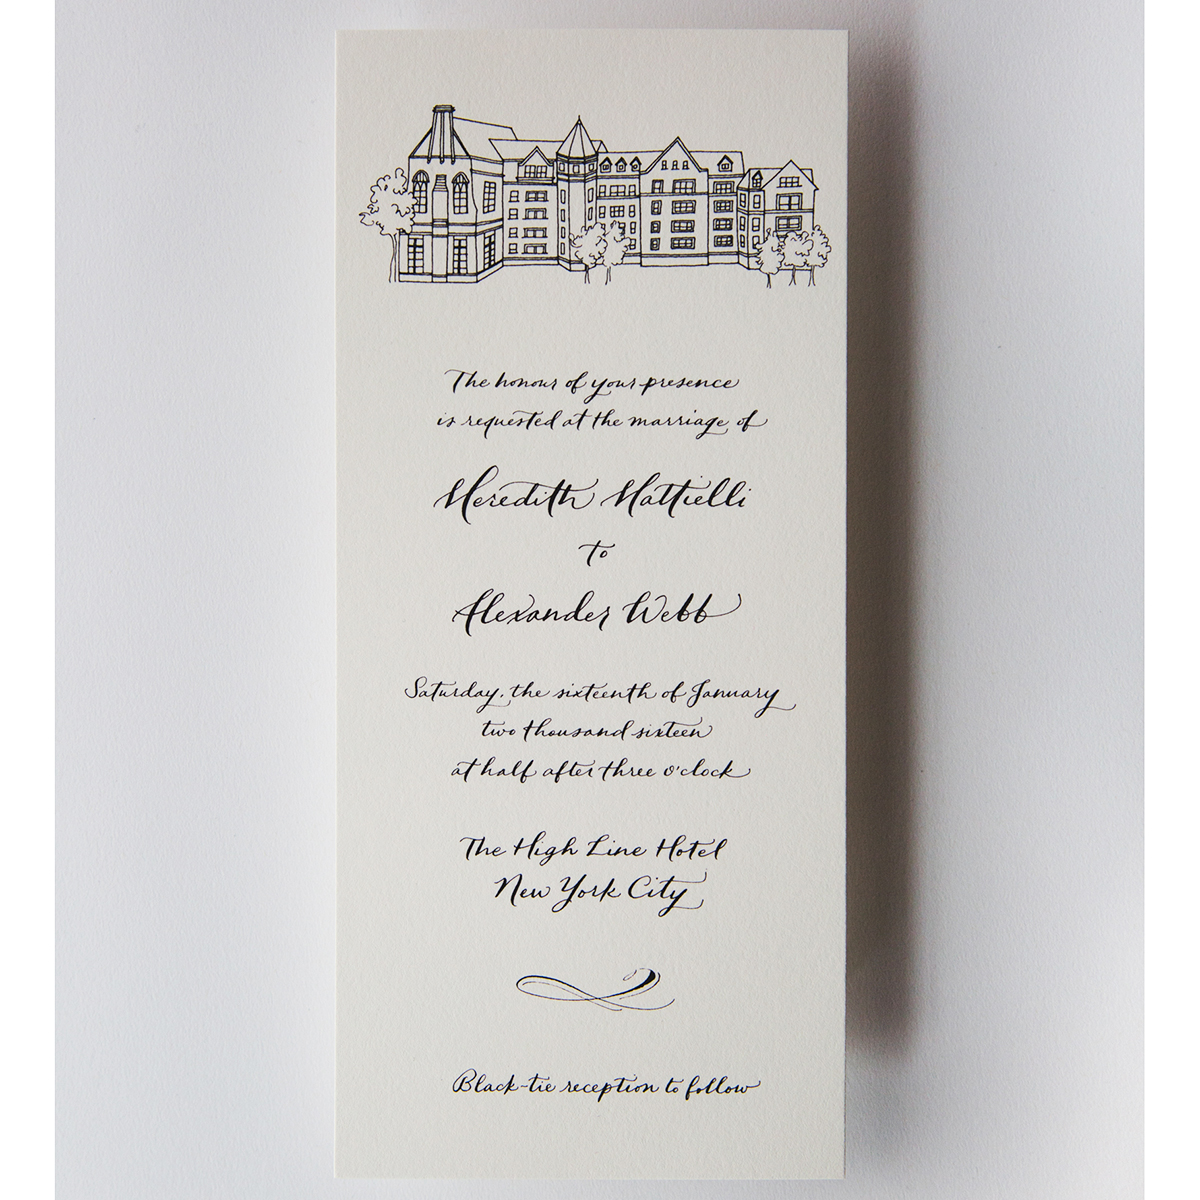 The honour of your presence
is requested at the marriage of
Meredith Mattielli
to
Alexander Webb
Saturday, the sixteenth of January
two thousand sixteen
at half after three o'clock
The High Line Hotel
New York City
Black-tie reception to follow